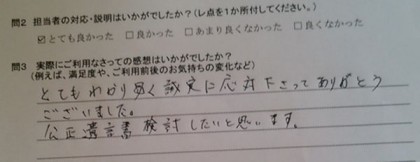 問2 担当者の対応・説明はいかがでしたか？(レ点を1か所付してください。)
☑とても良かった □良かった □あまり良くなかった □良くなかった
問3 実際にご利用なさっての感想はいかがでしたか？
(例えば、満足度や、ご利用前後のお気持ちの変化など)
とてもわかり易く誠実に応対下さってありがとう
ございました。
公正遺言書検討したいと思います。